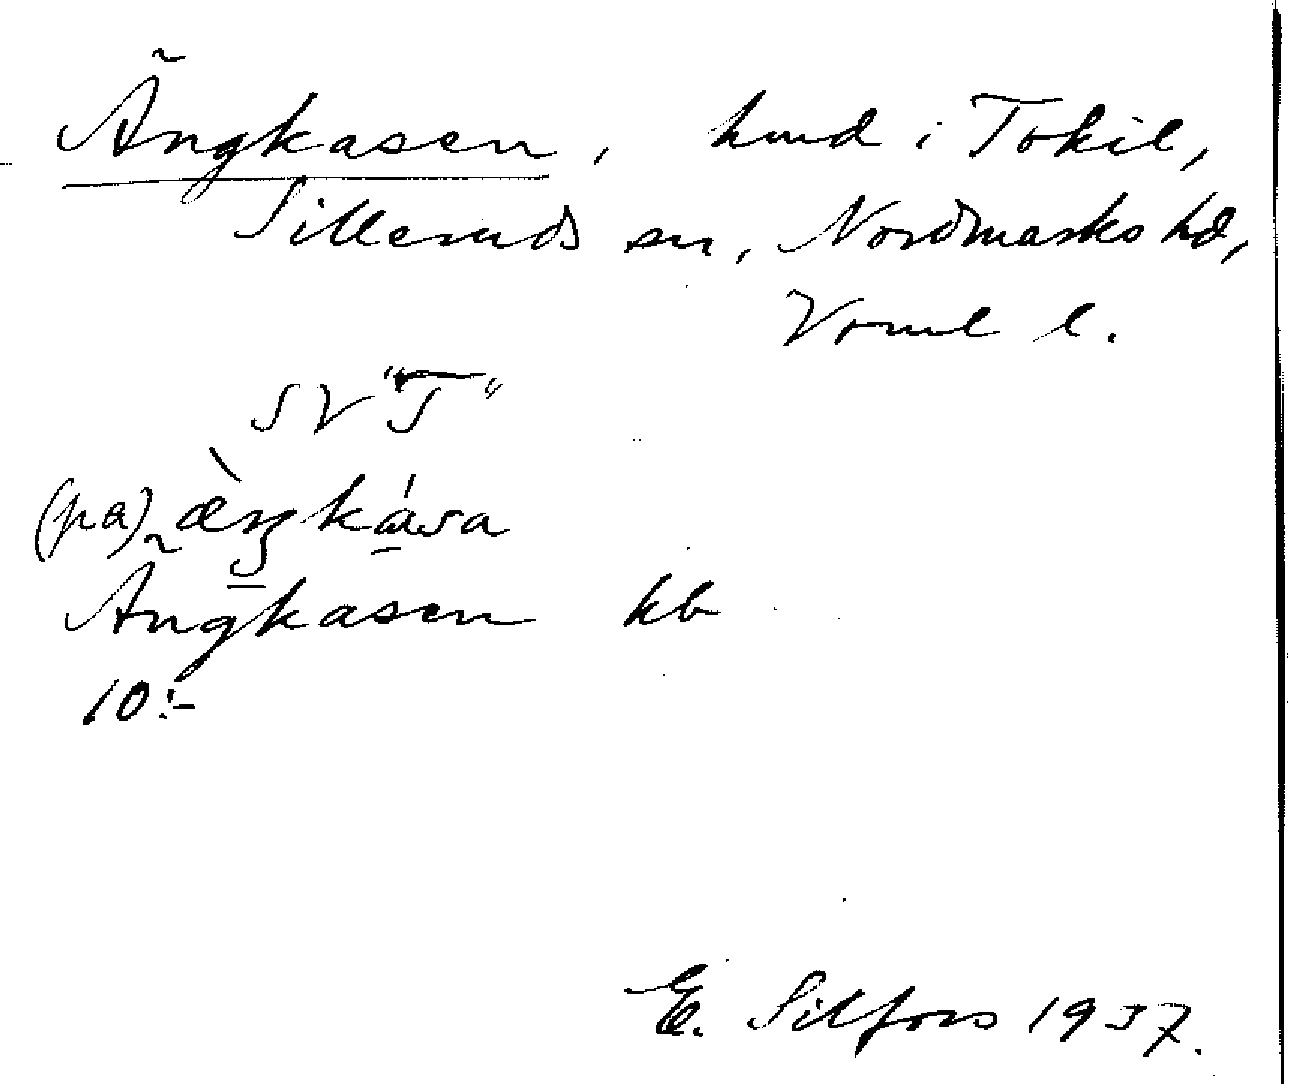 Ängkasen, hmd i Tokil,
Silleruds sn, Nordmarks hd,
Vrml l.
SV "T"
(pa) æ̀ŋkása
Ängkasen kb
10:-
E. Silfors 1937.